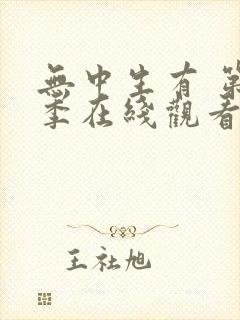 無中生有 第
季在綫觀看
王社旭